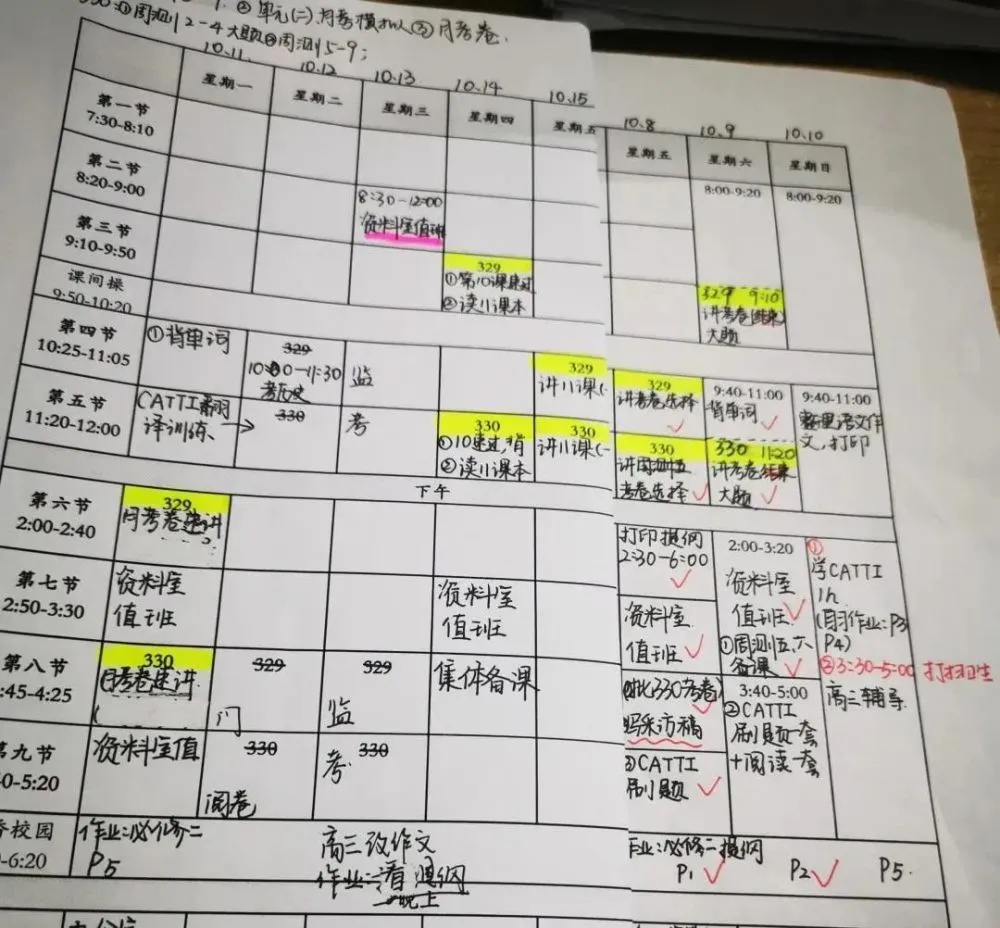 330:①周测2-4大题②周测5-9;
②单元(二)、月考模拟③月考卷.
10.11 10.12 10.13 10.14 10.15
星期一 星期二 星期三 星期四 星期五
第一节
7:30-8:10
第二节
8:20-9:00
8:30-12:00
资料室值班
第三节
9:10-9:50
329
①第10课速过
②读11课本
课间操
9:50-10:20
第四节
10:25-11:05
①背单词
329
10:00-11:30
考历史
监
329
讲11课(-
第五节
11:20-12:00
CATTI翻
译训练、
330
考
330
①10速过,背
②读11课本
330
讲11课(-
下午
第六节
2:00-2:40
329
月考卷速讲
第七节
2:50-3:30
资料室
值班
资料室
值班
第八节
:45-4:25
330
月考卷速讲
329
门
329
监
集体备课
第九节
0-5:20
资料室值
330
阅卷
330
考
校园
-6:20
作业:必修二
P5
高三改作文
作业:看提纲
晚上
10.8 10.9 10.10
星期五 星期六 星期日
8:00-9:20 8:00-9:20
329 9:10
讲考卷(结束)
大题
329
讲考卷选择
9:40-11:00
背单词
9:40-11:00
整理语文作
文,打印
330
讲周测五
考卷选择
330 11:20
讲考卷结束
大题
打印提纲
2:30-6:00
2:00-3:20
资料室
值班
①周测五、六
备课
①
学CATTI
1h
(自习作业:P3
P4)
②3:30-5:00 打扫卫生
高三辅导
资料室
值班
批330考卷
采访稿
3:40-5:00
②CATTI
刷题一套
+阅读一套
③CATTI
刷题
作业:必修二提纲
P1 P2 P5.